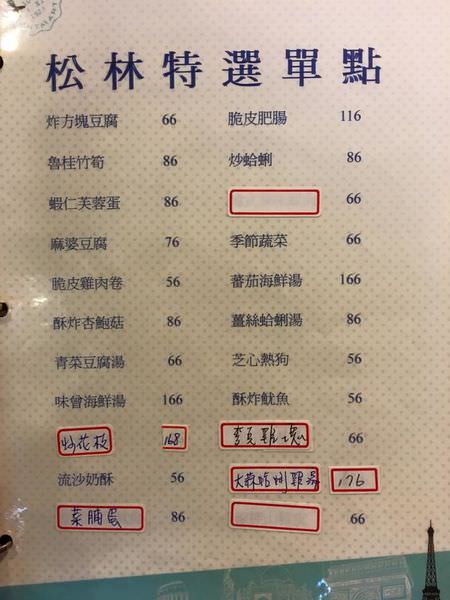 松林特選單點
炸方塊豆腐 66
脆皮肥腸 116
魯桂竹筍 86
炒蛤蜊 86
蝦仁芙蓉蛋 86
66
麻婆豆腐 76
季節蔬菜 66
脆皮雞肉卷 56
蕃茄海鮮湯 166
酥炸杏鮑菇 86
薑絲蛤蜊湯 86
青菜豆腐湯 66
芝心熱狗 56
味噌海鮮湯 166
酥炸魷魚 56
炒花枝 168
雞塊 66
流沙奶酥 56
大蒜蛤蜊雞湯 176
菜脯蛋 86
66